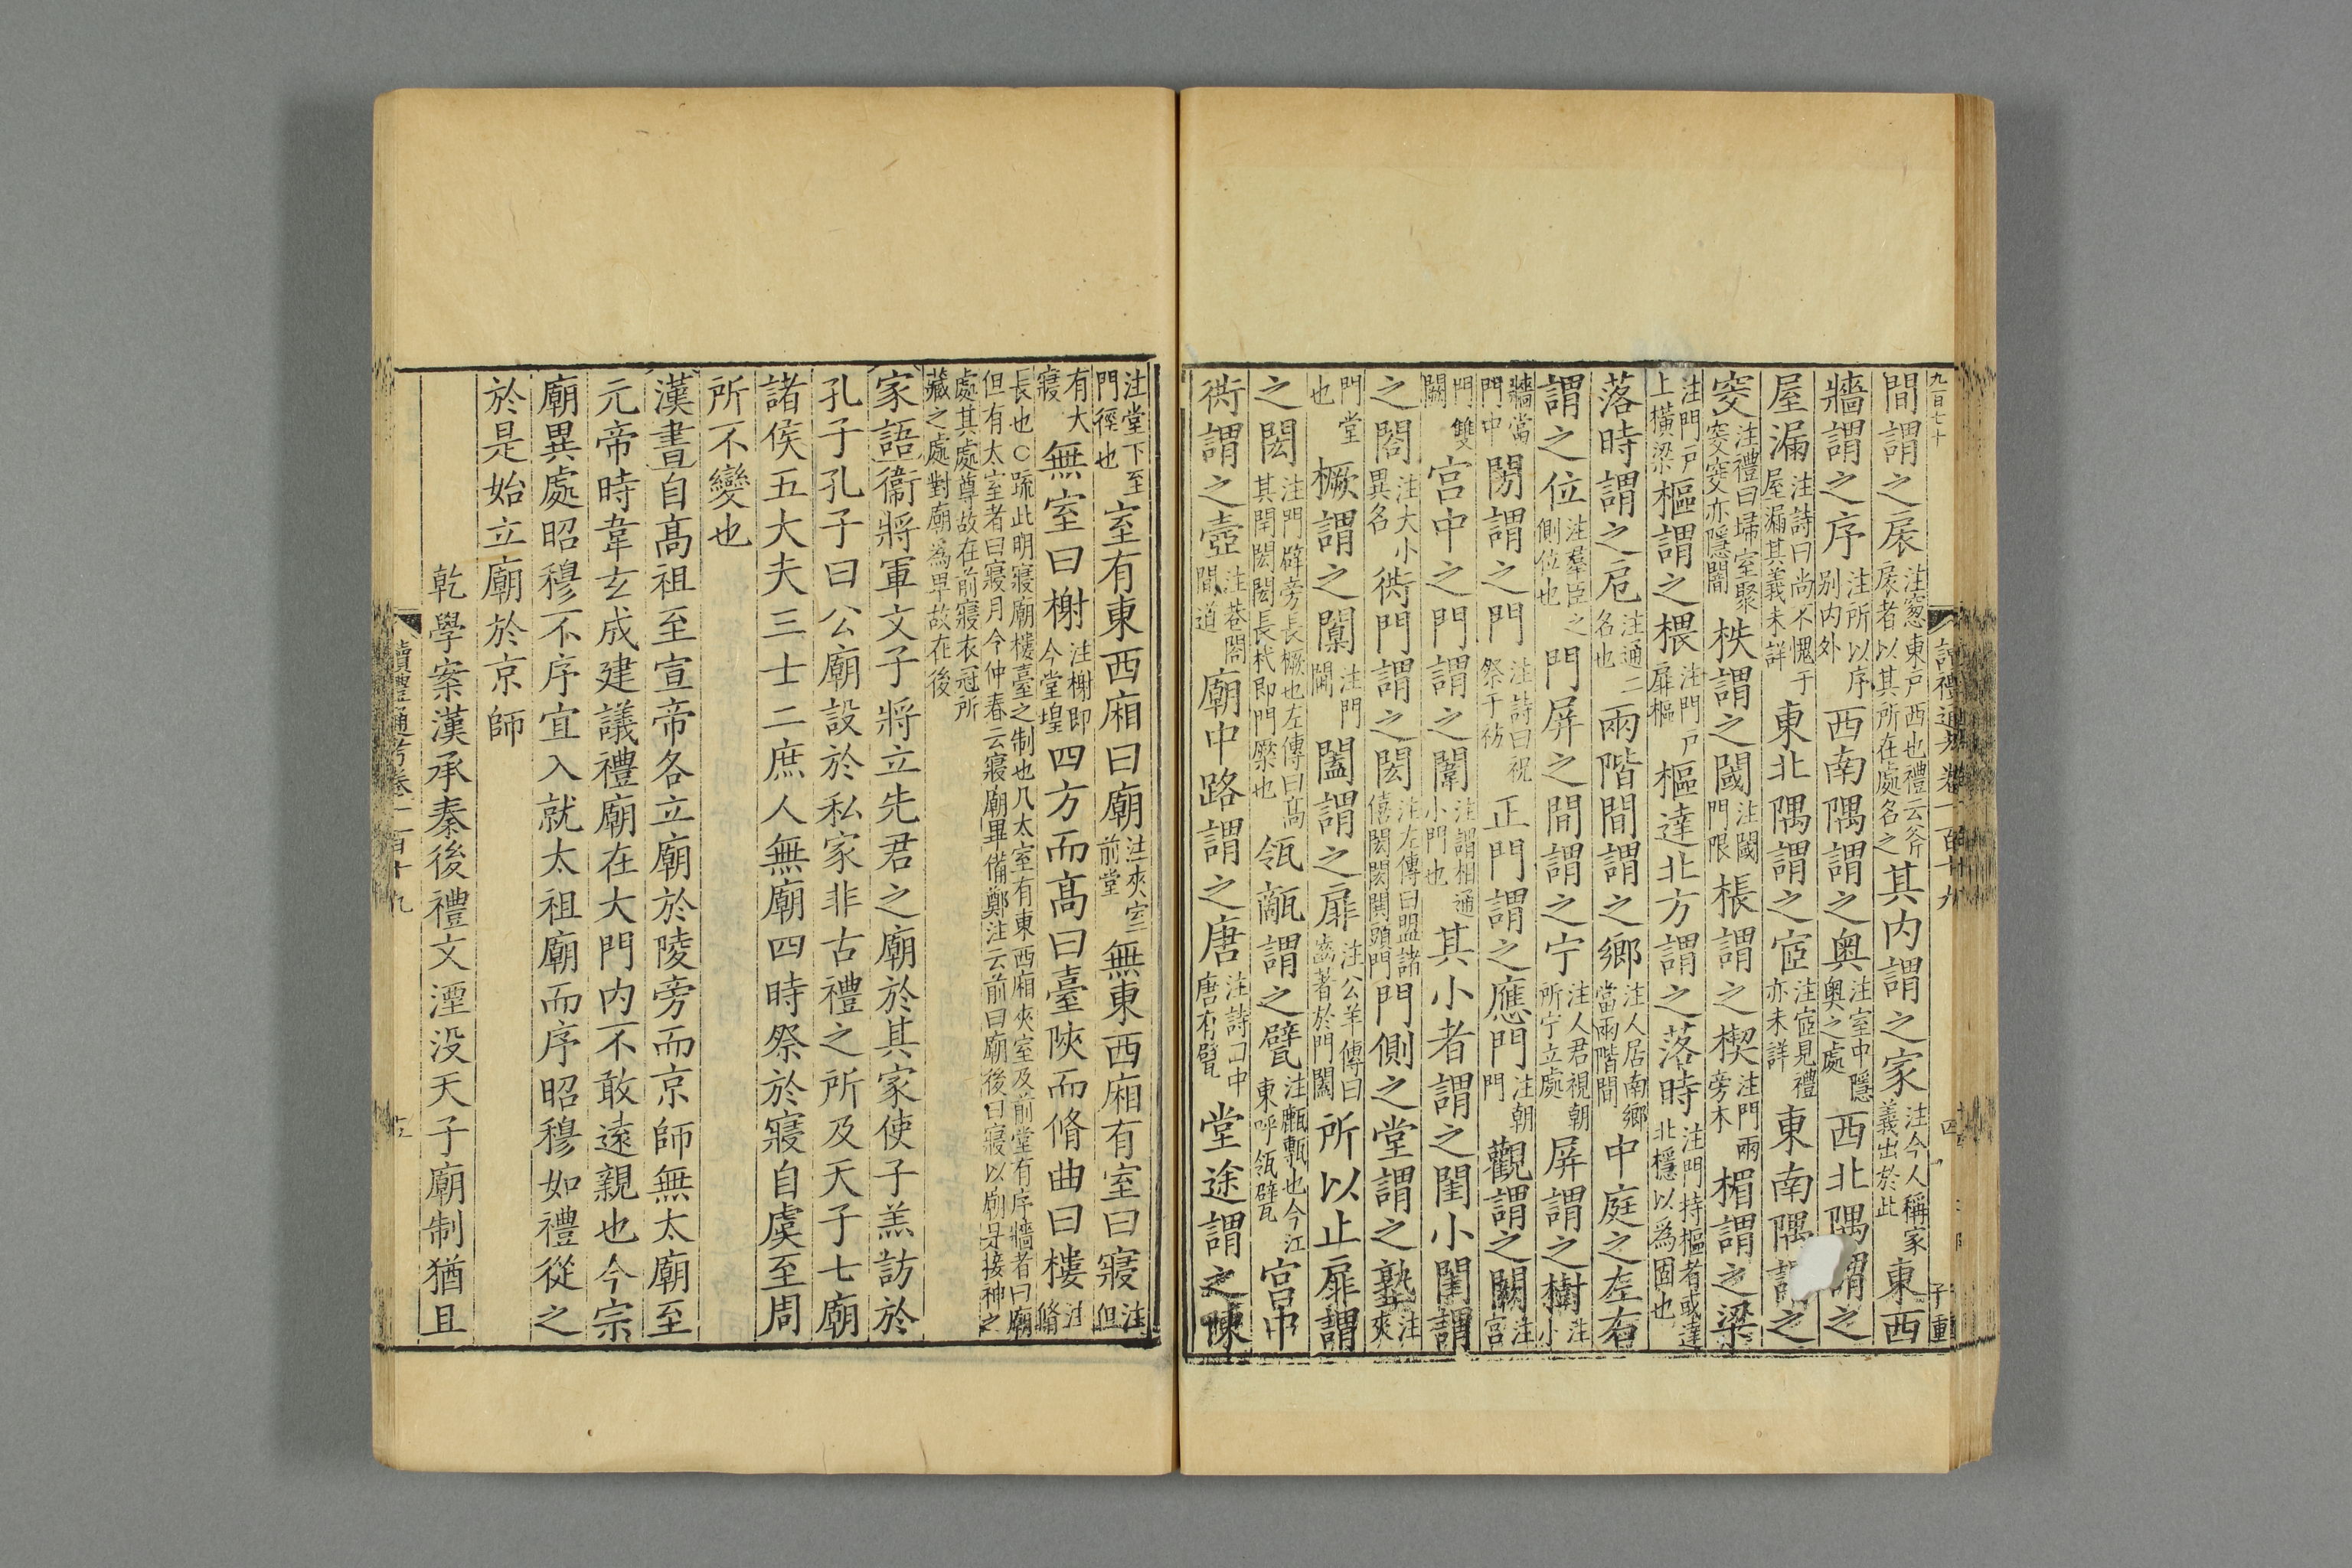 九百七十
讀禮通考卷一百十九
十四
子重
間謂之扆注窻東戸西也禮云斧扆者以其所在處名之其内謂之家注今人稱家義出於此東西
牆謂之序注所以序别内外西南隅謂之奥注室中隱奥之處西北隅謂之
屋漏注詩曰尚不愧于屋漏其義未詳東北隅謂之宧注宧見禮亦未詳東南隅謂之
窔注禮曰埽室聚窔窔亦隱闇柣謂之閾注閾門限棖謂之楔注門兩旁木楣謂之梁
注門戸上橫梁樞謂之椳注門戸扉樞樞達北方謂之落時注門持樞者或達北檼以為固也
落時謂之戹注通二名也兩階間謂之鄉注人居南鄉當兩階間中庭之左右
謂之位注羣臣之側位也門屏之間謂之宁注人君視朝所宁立處屏謂之樹注小
牆當門中閍謂之門注詩曰祝祭于祊正門謂之應門注朝門觀謂之闕注宮
門雙闕宮中之門謂之闈注謂相通小門也其小者謂之閨小閨謂
之閤注大小異名衖門謂之閎注左傳曰盟諸僖閎閎閧頭門門側之堂謂之塾注夾
門堂也橛謂之闑注門閫闔謂之扉注公羊傳曰齒著於門闔所以止扉謂
之閎注門辟旁長橛也左傳曰髙其閈閎閎長杙即門橜也瓴甋謂之甓注㼾甎也今江東呼瓴甓宮中
衖謂之壼注巷閤間道廟中路謂之唐注詩曰中唐有甓堂途謂之陳
注堂下至門徑也室有東西廂曰廟注夾室前堂無東西廂有室曰寢注但
有大寢無室曰榭注榭即今堂堭四方而髙曰臺陜而脩曲曰樓注脩
長也○䟽此明寢廟樓臺之制也凡太室有東西廂夾室及前堂有序牆者曰廟
但有太室者曰寢月令仲春云寢廟畢備鄭注云前曰廟後曰寢以廟是接神之
處其處尊故在前寢衣冠所
藏之處對廟為卑故在後
家語衞將軍文子將立先君之廟於其家使子羔訪於
孔子孔子曰公廟設於私家非古禮之所及天子七廟
諸侯五大夫三士二庶人無廟四時祭於寢自虞至周
所不變也
漢書自髙祖至宣帝各立廟於陵旁而京師無太廟至
元帝時韋玄成建議禮廟在大門内不敢遠親也今宗
廟異處昭穆不序宜入就太祖廟而序昭穆如禮從之
於是始立廟於京師
乾學案漢承秦後禮文湮没天子廟制猶且
讀禮通考卷一百十九
十五